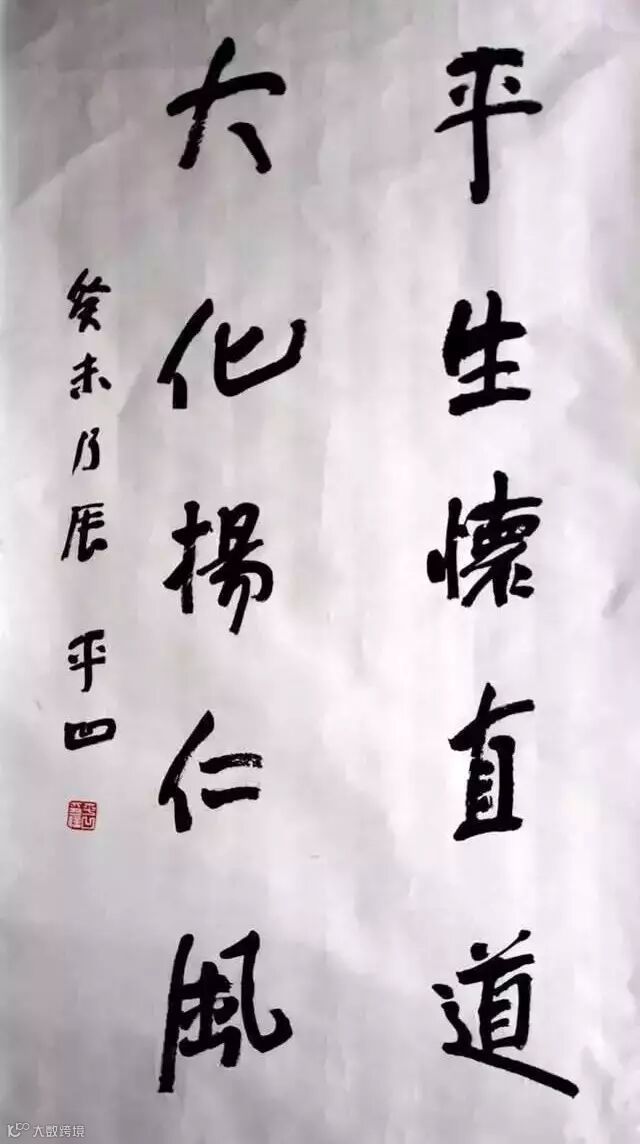 平生懷直道
大化揚仁風
癸未乃辰 平凹
大数跨境